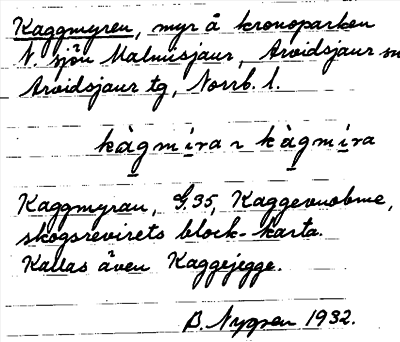 Kaggmyren, myr å kronoparken
N. sjön Malmisjaur, Arvidsjaur sn
Arvidsjaur tg, Norrb. l.
kàgmíra ~ kàgmíra
Kaggmyran, G.35, Kaggevuobme,
skogsrevirets block-karta.
Kallas även Kaggejegge.
B. Nygren 1932.